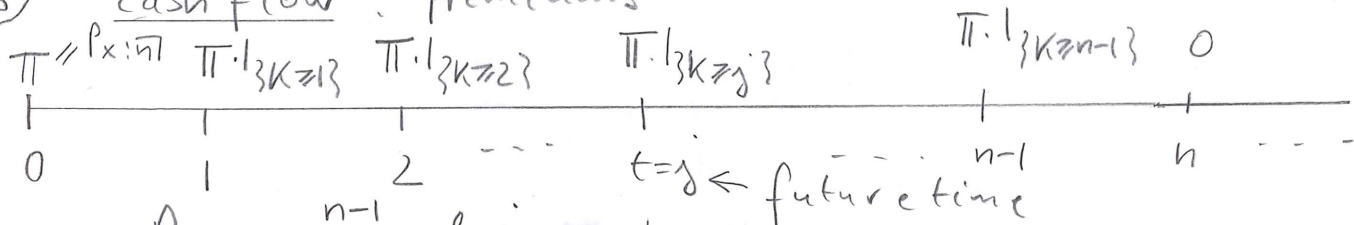 cash flow : premiums
π = P_{x:n̅|} π·1_{K≥1} π·1_{K≥2} π·1_{K≥j} π·1_{K≥n-1} 0
0 1 2 - - - t=j ← future time - - - n-1 n - - - -
n-1